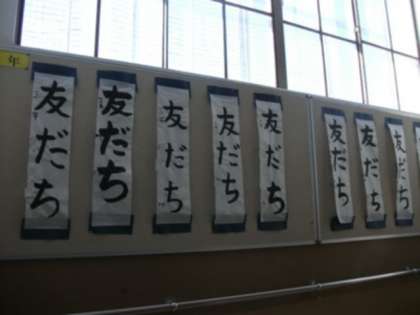 年
友だち
友だち
友だち
友だち
友だち
友だち
友だち
友だち